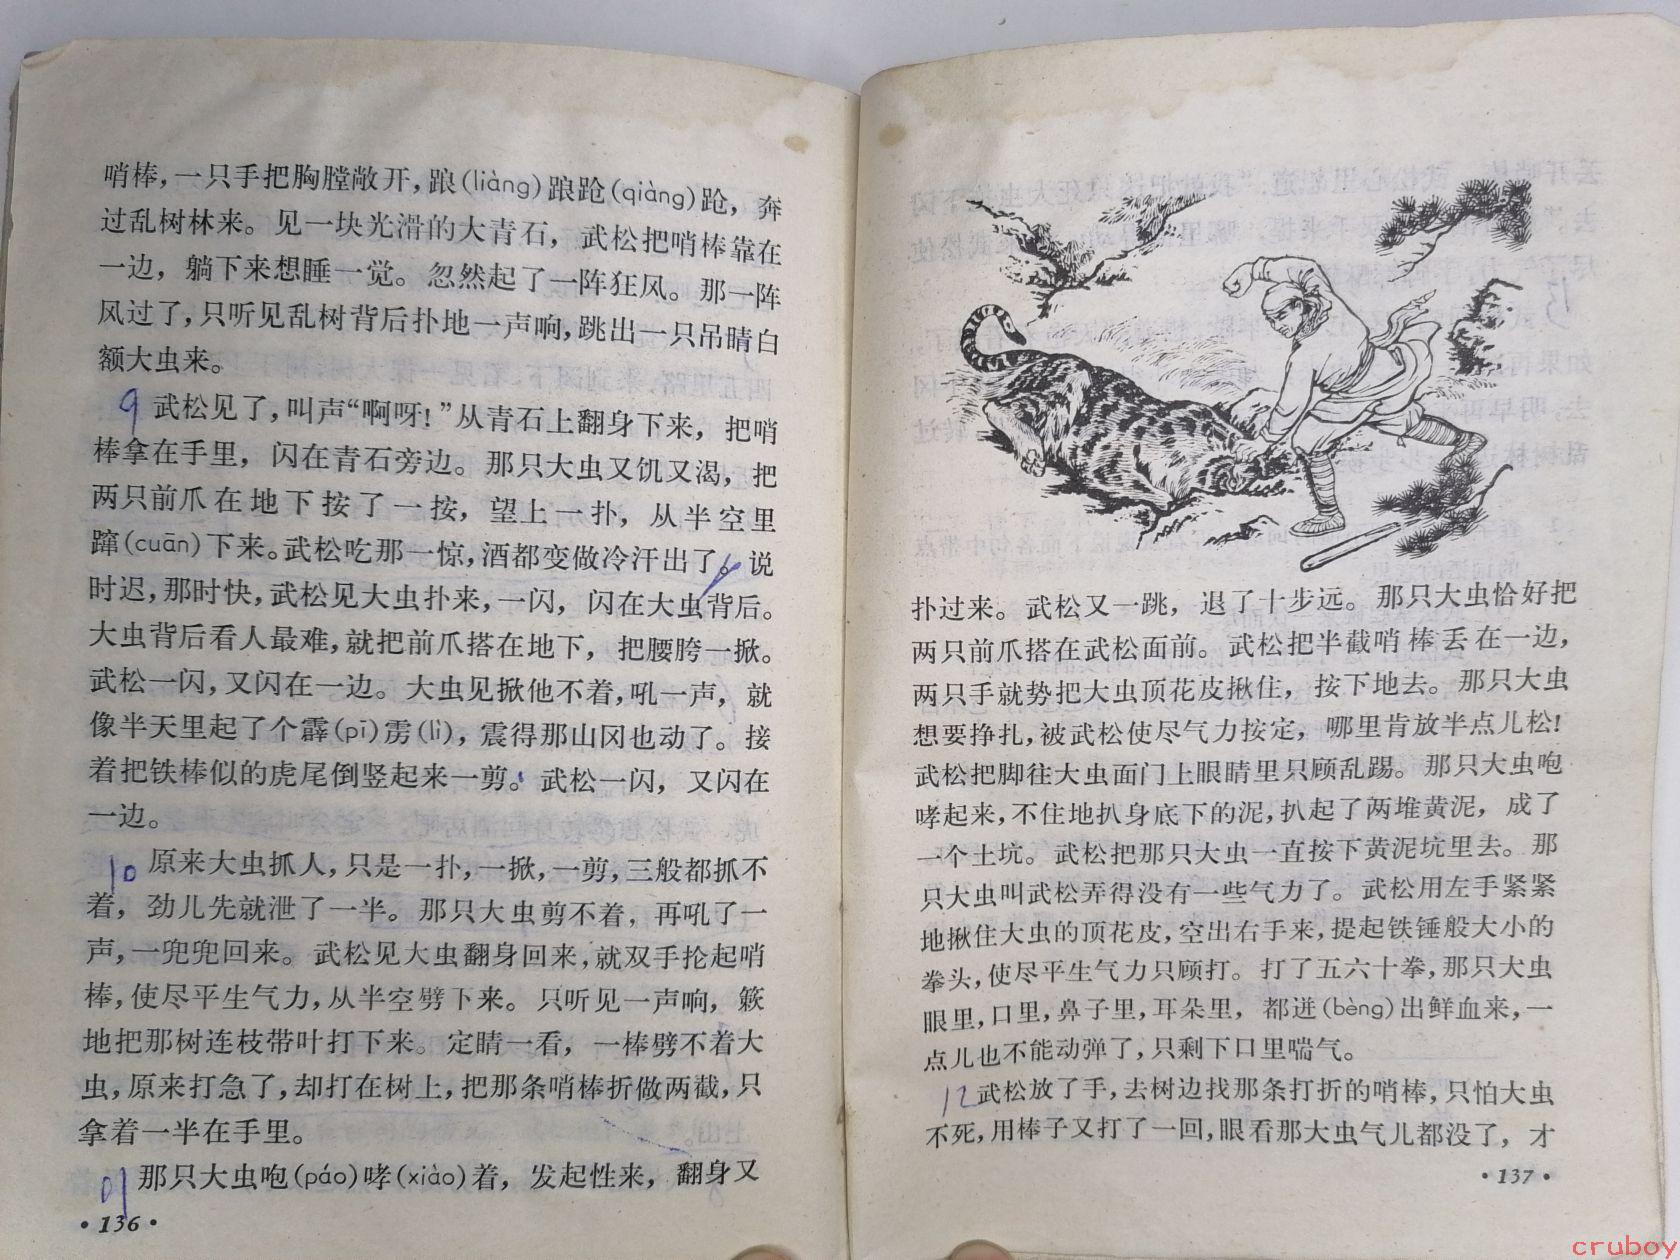 哨棒，一只手把胸膛敞开，踉(liàng)踉跄(qiàng)跄，奔
过乱树林来。见一块光滑的大青石，武松把哨棒靠在
一边，躺下来想睡一觉。忽然起了一阵狂风。那一阵
风过了，只听见乱树背后扑地一声响，跳出一只吊睛白
额大虫来。
9 武松见了，叫声“啊呀！”从青石上翻身下来，把哨
棒拿在手里，闪在青石旁边。那只大虫又饥又渴，把
两只前爪在地下按了一按，望上一扑，从半空里
蹿(cuān)下来。武松吃那一惊，酒都变做冷汗出了。说
时迟，那时快，武松见大虫扑来，一闪，闪在大虫背后。
大虫背后看人最难，就把前爪搭在地下，把腰胯一掀。
武松一闪，又闪在一边。大虫见掀他不着，吼一声，就
像半天里起了个霹(pī)雳(lì)，震得那山冈也动了。接
着把铁棒似的虎尾倒竖起来一剪。武松一闪，又闪在
一边。
10 原来大虫抓人，只是一扑，一掀，一剪，三般都抓不
着，劲儿先就泄了一半。那只大虫剪不着，再吼了一
声，一兜兜回来。武松见大虫翻身回来，就双手抡起哨
棒，使尽平生气力，从半空劈下来。只听见一声响，簌
地把那树连枝带叶打下来。定睛一看，一棒劈不着大
虫，原来打急了，却打在树上，把那条哨棒折做两截，只
拿着一半在手里。
那只大虫咆(páo)哮(xiào)着，发起性来，翻身又
·136·
扑过来。武松又一跳，退了十步远。那只大虫恰好把
两只前爪搭在武松面前。武松把半截哨棒丢在一边，
两只手就势把大虫顶花皮揪住，按下地去。那只大虫
想要挣扎，被武松使尽气力按定，哪里肯放半点儿松！
武松把脚往大虫面门上眼睛里只顾乱踢。那只大虫咆
哮起来，不住地扒身底下的泥，扒起了两堆黄泥，成了
一个土坑。武松把那只大虫一直按下黄泥坑里去。那
只大虫叫武松弄得没有一些气力了。武松用左手紧紧
地揪住大虫的顶花皮，空出右手来，提起铁锤般大小的
拳头，使尽平生气力只顾打。打了五六十拳，那只大虫
眼里，口里，鼻子里，耳朵里，都迸(bèng)出鲜血来，一
点儿也不能动弹了，只剩下口里喘气。
12 武松放了手，去树边找那条打折的哨棒，只怕大虫
不死，用棒子又打了一回，眼看那大虫气儿都没了，才
·137·
cruboy